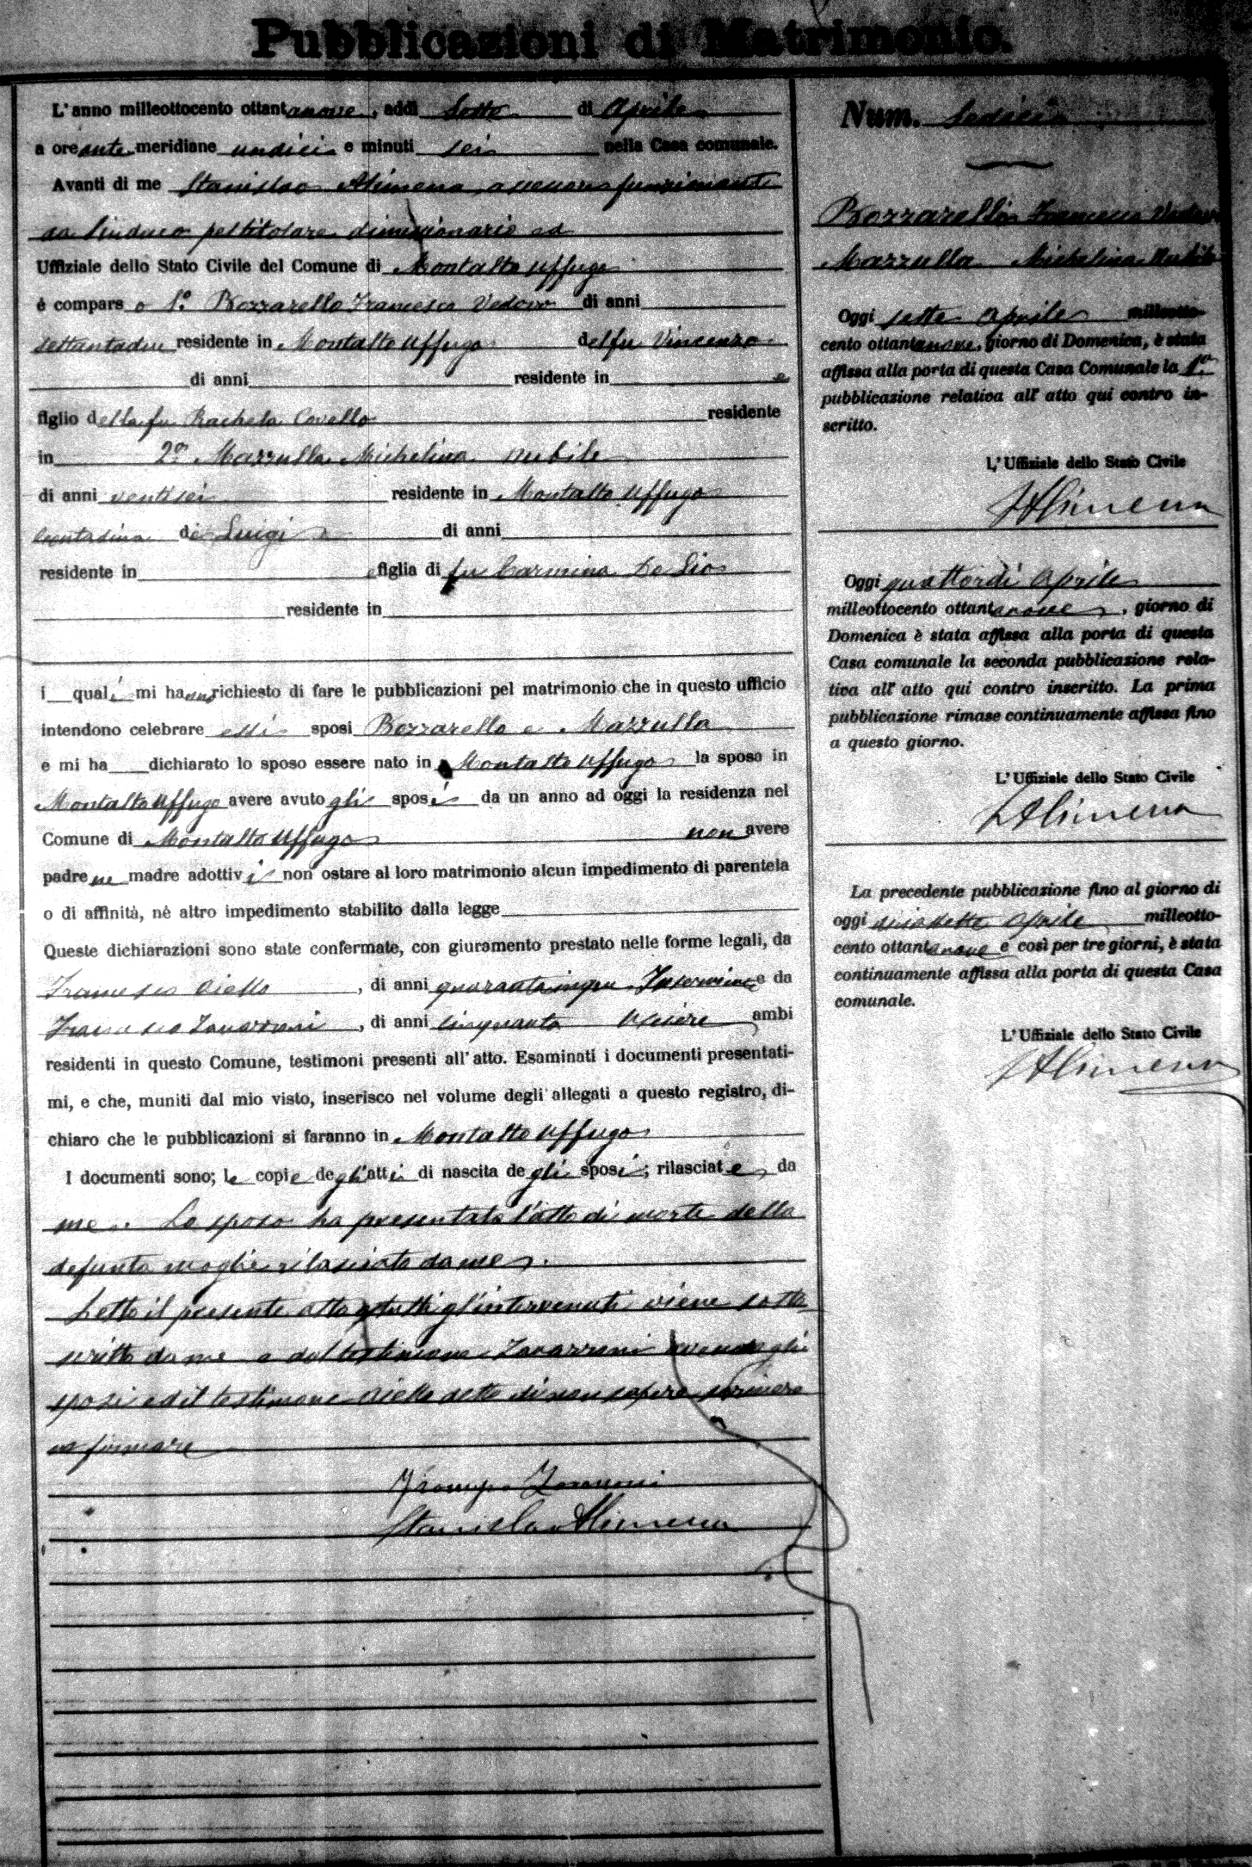 Pubblicazioni di Matrimonio.
L'anno milleottocento ottantanove, addì Sette di Aprile
a ore ante meridiane undici e minuti sei nella Casa comunale.
Avanti di me Stanislao Alimena, assessore funzionante
da Sindaco pel titolare dimissionario ed
Uffiziale dello Stato Civile del Comune di Montalto Uffugo
è comparso 1.° Bozzarello Francesco Vedovo di anni
settantadue residente in Montalto Uffugo del fu Vincenzo
di anni residente in e
figlio della fu Rachela Covello residente
in 2.° Mazzulla Michelina nubile
di anni ventisei residente in Montalto Uffugo
contadina di Luigi di anni
residente in e figlia di fu Carmina De Lio
residente in
i quali mi hanno richiesto di fare le pubblicazioni pel matrimonio che in questo ufficio
intendono celebrare essi sposi Bozzarello e Mazzulla
e mi ha dichiarato lo sposo essere nato in Montalto Uffugo la sposa in
Montalto Uffugo avere avuto gli sposi da un anno ad oggi la residenza nel
Comune di Montalto Uffugo non avere
padre ne madre adottivi non ostare al loro matrimonio alcun impedimento di parentela
o di affinità, nè altro impedimento stabilito dalla legge
Queste dichiarazioni sono state confermate, con giuramento prestato nelle forme legali, da
Francesco Aiello, di anni quarantacinque e da
Francesco Zavarroni, di anni cinquanta Usciere ambi
residenti in questo Comune, testimoni presenti all'atto. Esaminati i documenti presentati-
mi, e che, muniti dal mio visto, inserisco nel volume degli allegati a questo registro, di-
chiaro che le pubblicazioni si faranno in Montalto Uffugo
I documenti sono; le copie degli atti di nascita degli sposi; rilasciate da
me. Lo sposo ha presentato l'atto di morte della
defunta moglie rilasciato da me.
Letto il presente atto a tutti gl'intervenuti viene sotto
scritto da me e dal testimone Zavarroni avendo gli
sposi ed il testimone Aiello detto di non sapere scrivere
ne firmare
Zavarroni
Stanislao Alimena
Num. Sedici
Bozzarello Francesco Vedovo
Mazzulla Michelina Nubile
Oggi sette Aprile milleotto-
cento ottantanove, giorno di Domenica, è stata
affissa alla porta di questa Casa Comunale la 1.a
pubblicazione relativa all'atto qui contro in-
scritto.
L'Uffiziale dello Stato Civile
SAlimena
Oggi quattordi Aprile
milleottocento ottantanove, giorno di
Domenica è stata affissa alla porta di questa
Casa comunale la seconda pubblicazione rela-
tiva all'atto qui contro inscritto. La prima
pubblicazione rimase continuamente affissa fino
a questo giorno.
L'Uffiziale dello Stato Civile
SAlimena
La precedente pubblicazione fino al giorno di
oggi diciasette Aprile milleotto-
cento ottantanove e così per tre giorni, è stata
continuamente affissa alla porta di questa Casa
comunale.
L'Uffiziale dello Stato Civile
SAlimena